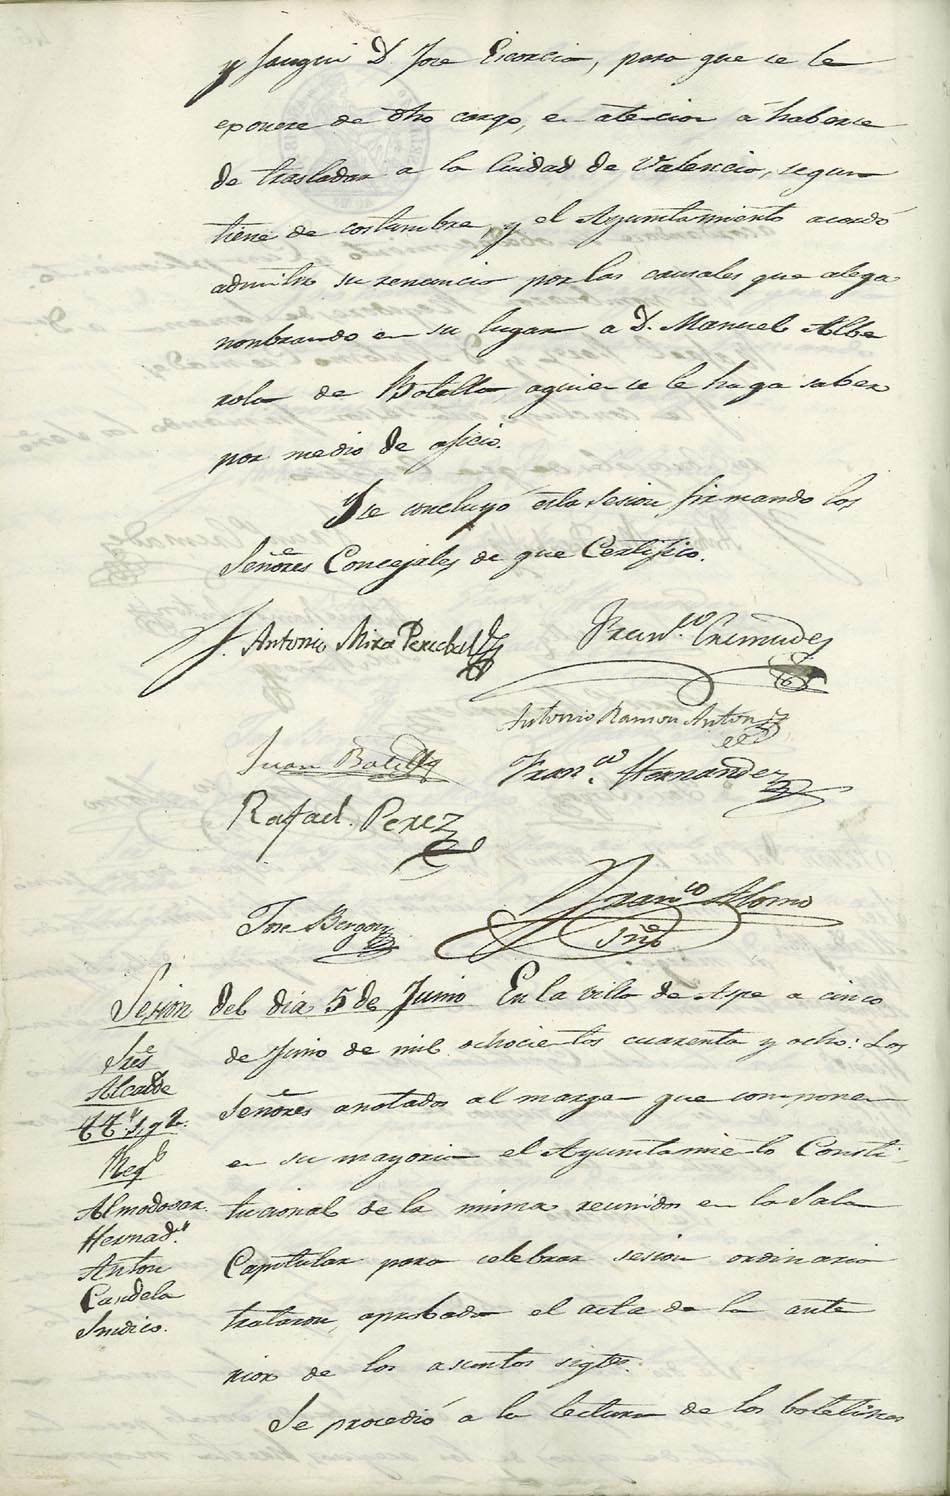 y Jauqui D. Jose Escorcia, para que se le
exonere de dho cargo, en atencion á haberse
de trasladar a la Ciudad de Valencia, segun
tiene de costumbre, y el Ayuntamiento acordó
admitir su renuncia por las causales que alega
nonbrando en su lugar a D. Manuel Albe
rola de Botella, aquien se le haga saber
por medio de oficio.
Y se concluyó esta Sesion, firmando los
Señores Concejales, de que Certifico.
J. Antonio Mira Percebal
Fran.co Cremades
Antonio Ramon Anton
Juan Botella
Fran.co Hernandez
Rafael Perez
Jose Berger
Fran.co Alorno
Srio
Sesion del dia 5 de Junio En la villa de Aspe a cinco
de Junio de mil ochocientos cuarenta y ocho: Los
Señores anotados al margen que componen
en su mayoria el Ayuntamiento Consti-
tucional de la misma reunidos en la Sala
Capitular para celebrar sesion ordinaria
trataron, aprobada el acta de la ante
rior de los asuntos sigtes.
Se procedió a la lectura de los boletines
Sres
Alcalde
TT.s 1, y 2.
Reg.s
Almodovar.
Hernad.s
Anton
Candela
Sindico.